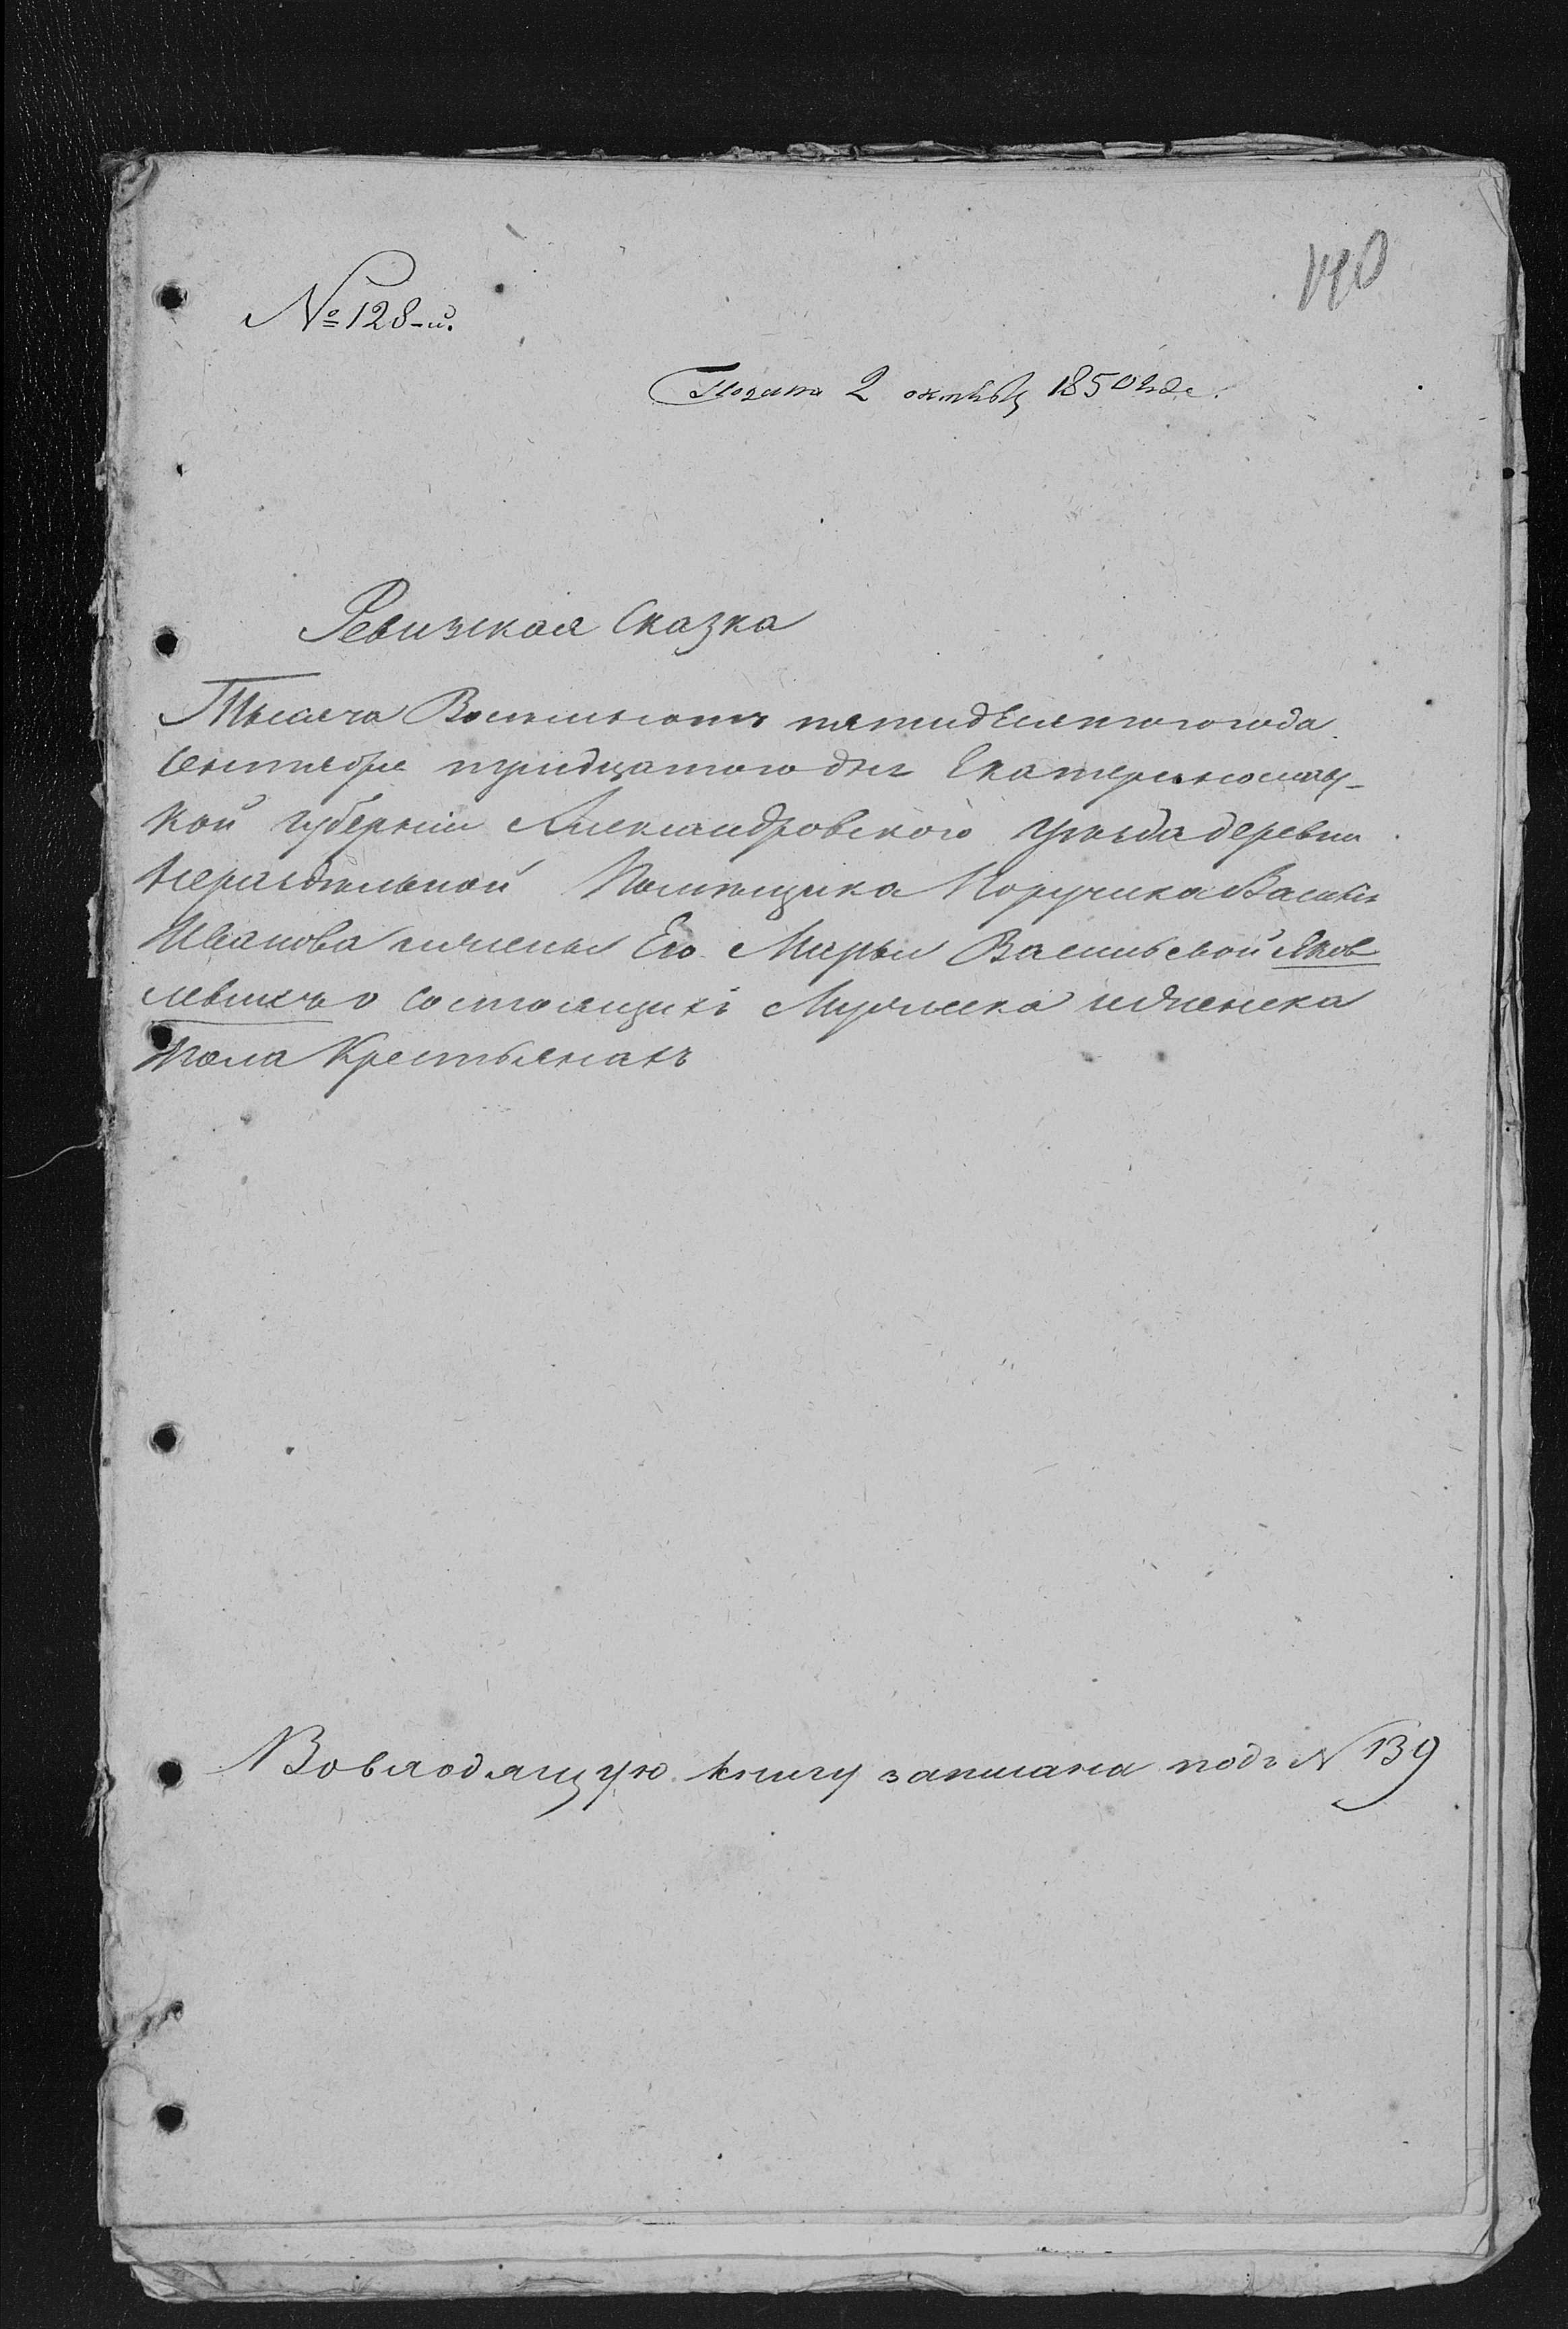 140
№ 128-й.
Подана 2 октября 1850 года.
Ревизская Сказка
Тысяча Восемьсотъ пятидесятого года
Сентября тридцатого дня Екатеринослав-
кой губернии Александровского уезда деревни
Нераздельной Помещика Поручика Василія
Иванова и жены Его Марьи Васильевой Яков
левыхъ о состоящихъ Мужеска и женска
пола Крестьянахъ
Вовходящую книгу записана подъ № 139